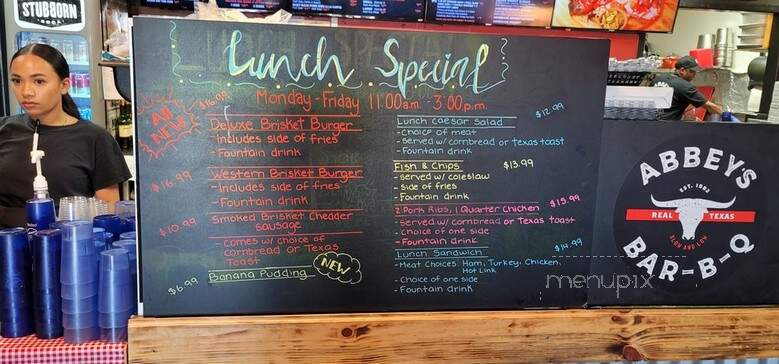 STUBBORN
SODA
Lunch Special
Monday - Friday 11:00am - 3:00p.m.
ALL NEW
$16.99
Deluxe Brisket Burger
- Includes side of fries
- Fountain drink
$16.99
Western Brisket Burger
- Includes side of fries
- Fountain drink
$10.99
Smoked Brisket Chedder
sausage
- comes w/ choice of
cornbread or Texas
Toast
$6.99
Banana Pudding
NEW
$12.99
Lunch Caesar Salad
- Choice of meat
- Served w/ cornbread or Texas toast
- Fountain drink
$13.99
Fish & Chips
- served w/ coleslaw
- side of fries
- Fountain drink
$15.99
2 Pork Ribs, 1 Quarter Chicken
- Served w/ cornbread or Texas toast
- Choice of one side
- Fountain drink
$14.99
Lunch Sandwich
- Meat Choices: Ham, Turkey, Chicken,
Hot Link
- Choice of one side
- Fountain drink
ABBEYS
REAL TEXAS
SLOW AND LOW
BAR-B-Q
menupix